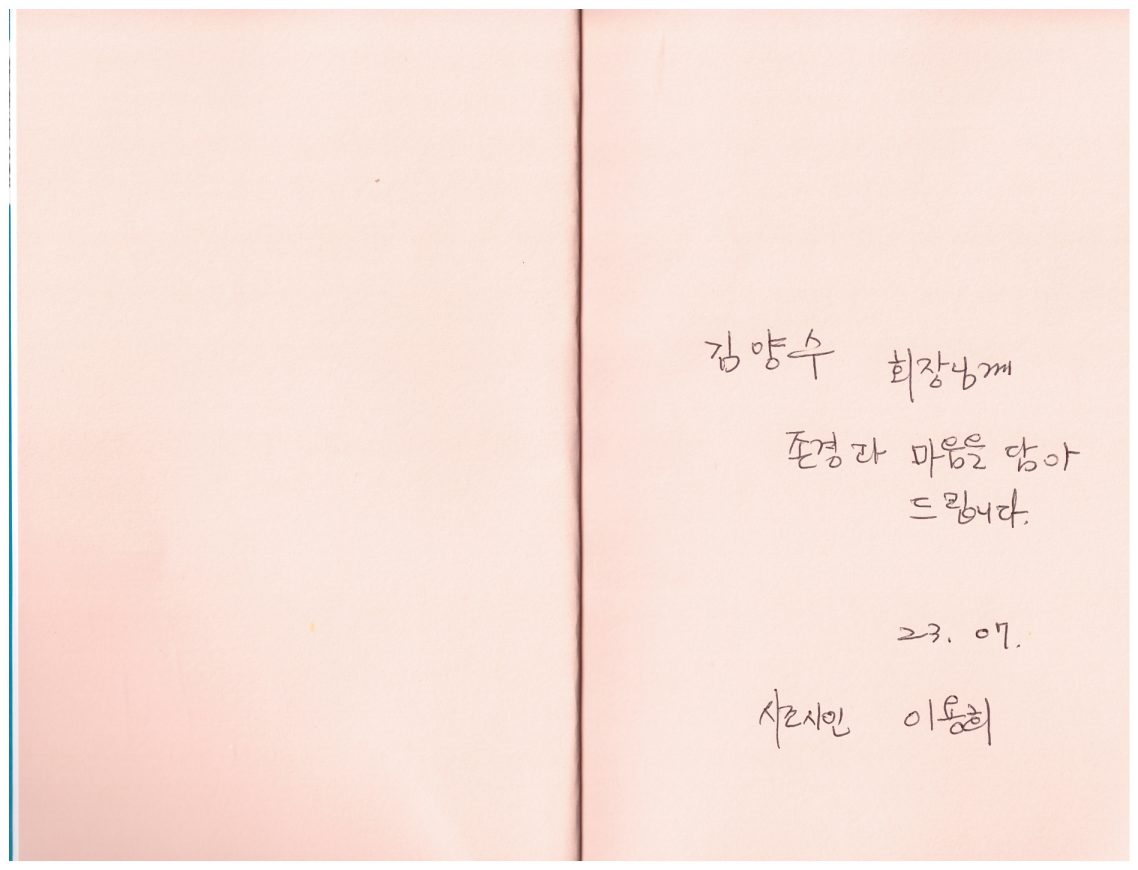 김양수 회장님께
존경과 마음을 담아
드립니다.
23. 07.
시조시인 이용희